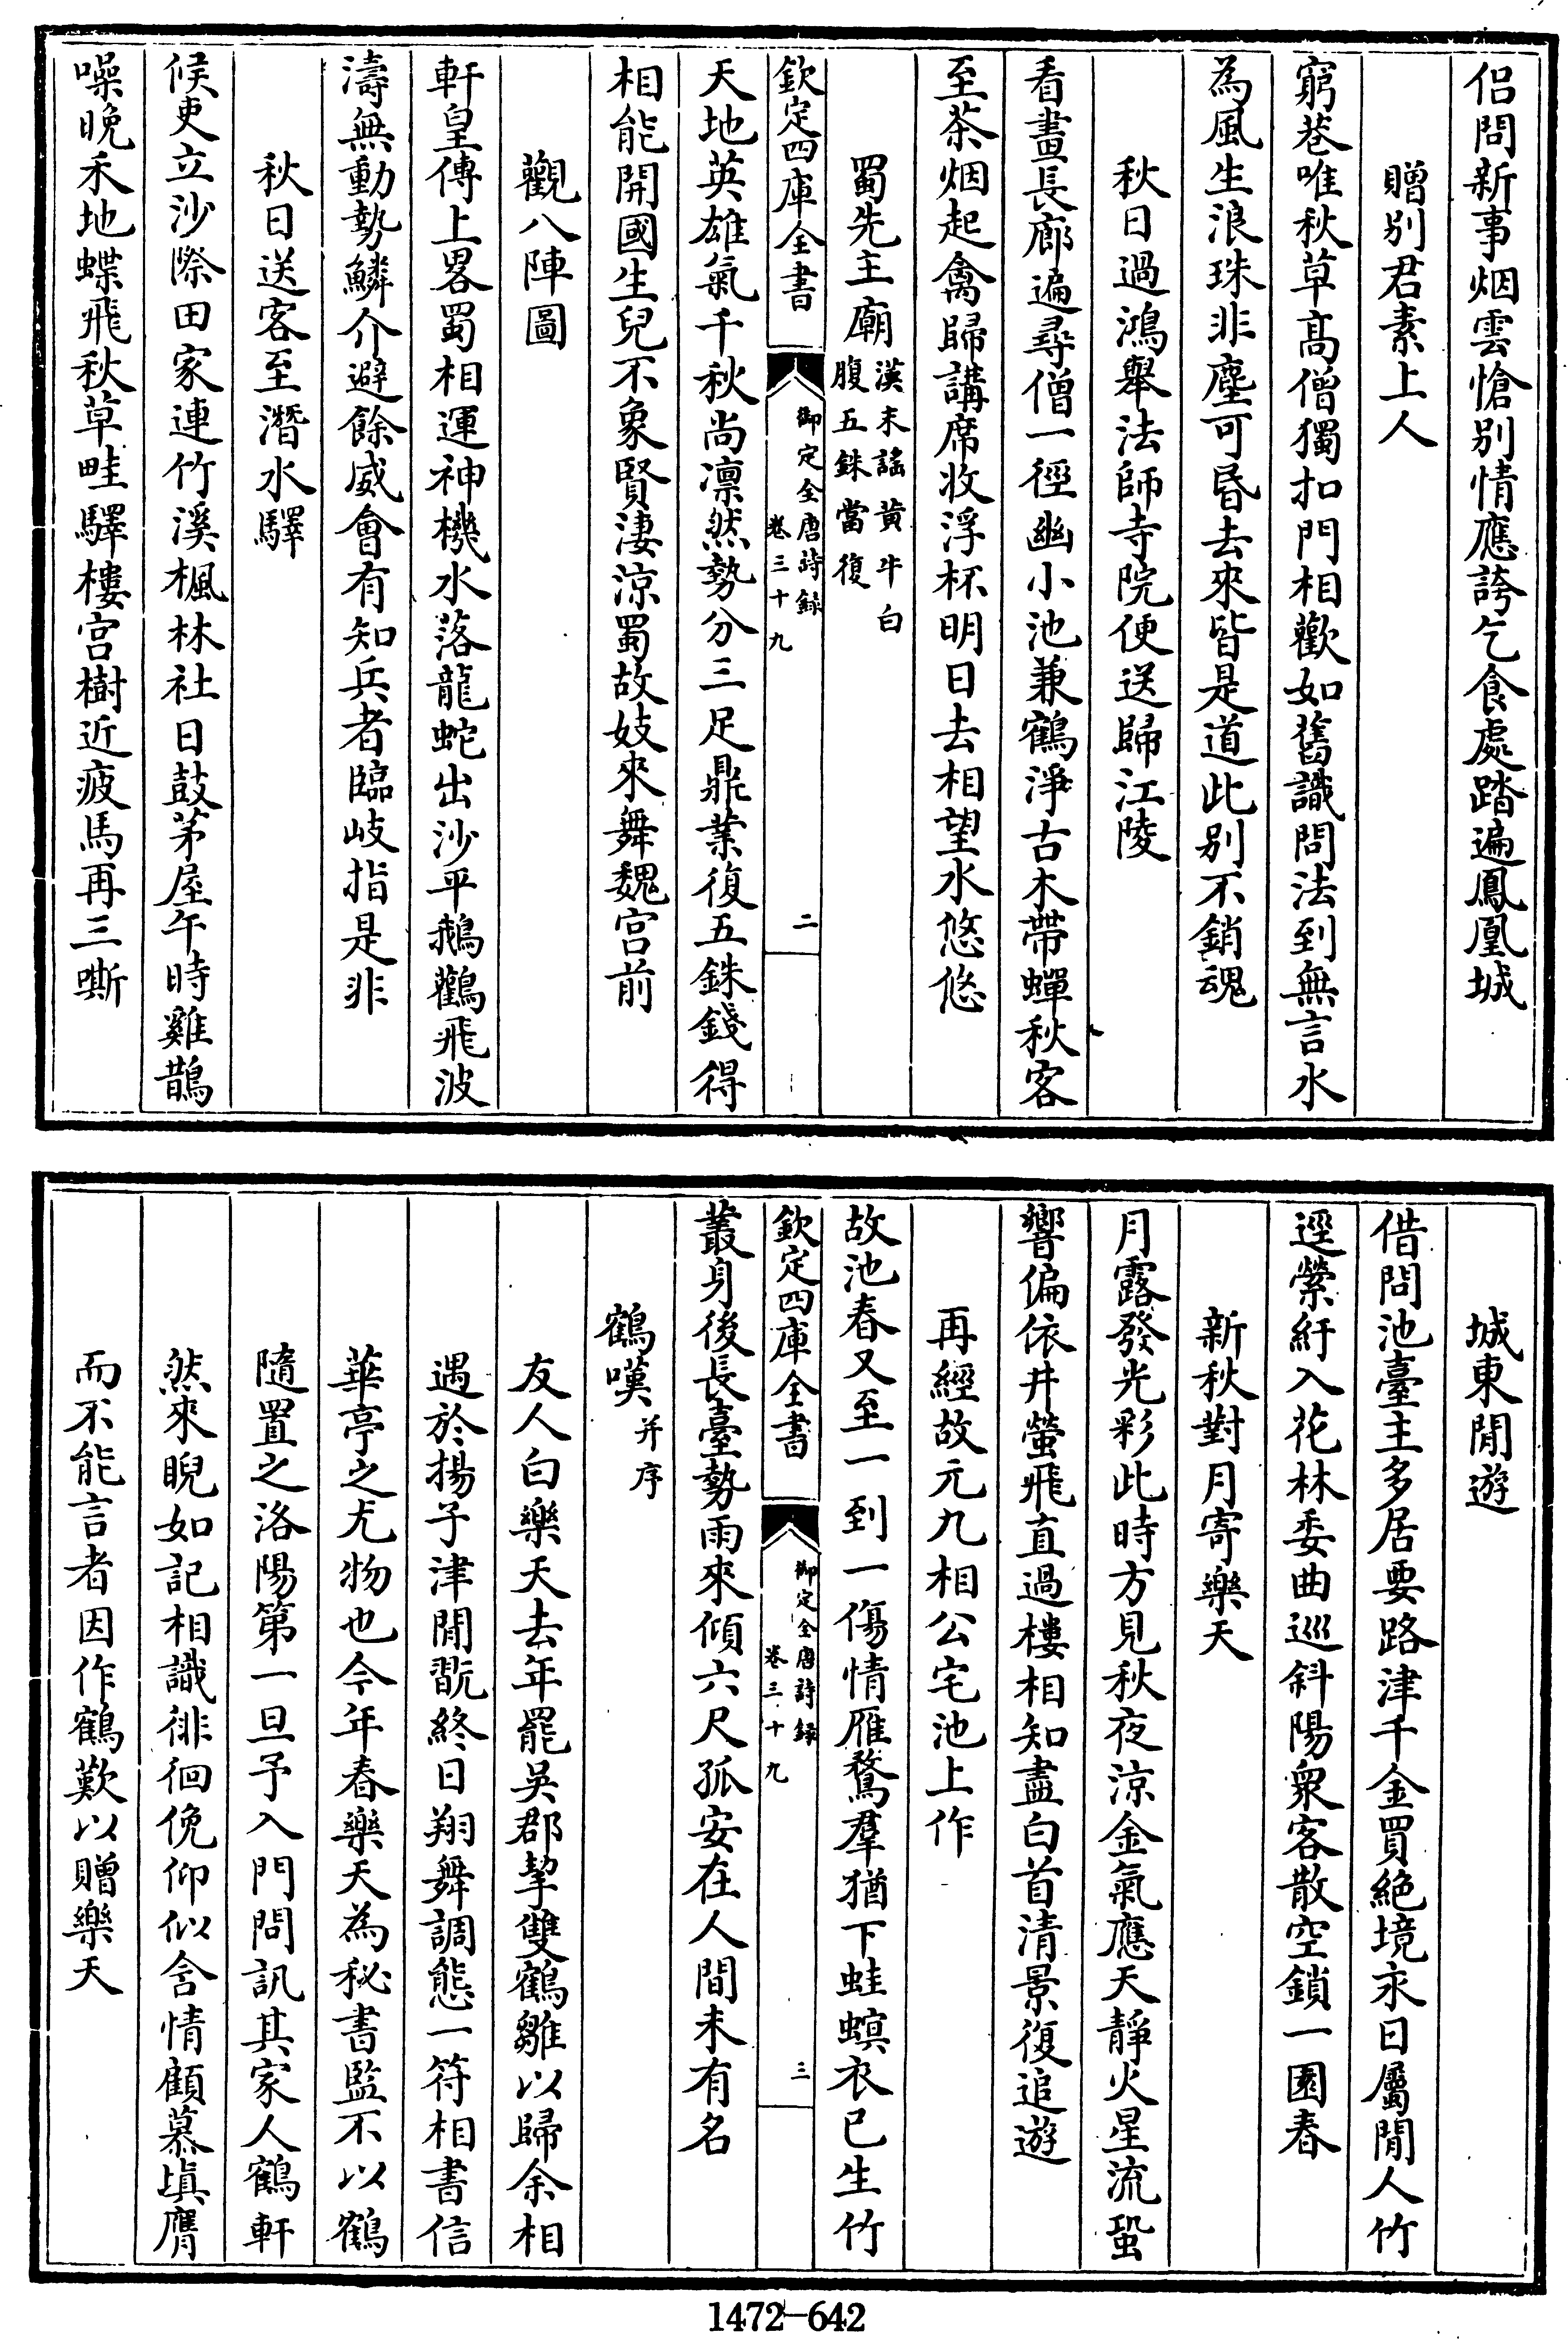 侣問新事烟雲愴别情應誇乞食處踏遍鳳凰城
贈别君素上人
窮巷唯秋草髙僧獨扣門相歡如舊識問法到無言水
為風生浪珠非塵可昬去來皆是道此别不銷魂
秋日過鴻舉法師寺院便送歸江陵
看畫長廊遍尋僧一徑幽小池兼鶴淨古木帶蟬秋客
至茶烟起禽歸講席收浮杯明日去相望水悠悠
蜀先主廟漢末謡黄牛白
腹五銖當復
欽定四庫全書
御定全唐詩録
卷三十九
二
天地英雄氣千秋尚凛然勢分三足鼎業復五銖錢得
相能開國生兒不象賢淒涼蜀故妓來舞魏宫前
觀八陣圖
軒皇傳上畧蜀相運神機水落龍蛇出沙平鵝鸛飛波
濤無動勢鱗介避餘威會有知兵者臨岐指是非
秋日送客至潛水驛
候吏立沙際田家連竹溪楓林社日鼓茅屋午時雞鵲
噪晚禾地蝶飛秋草畦驛樓宫樹近疲馬再三嘶
城東閒遊
借問池臺主多居要路津千金買絶境永日屬閒人竹
逕縈紆入花林委曲巡斜陽衆客散空鎖一園春
新秋對月寄樂天
月露發光彩此時方見秋夜涼金氣應天靜火星流蛩
響偏依井螢飛直過樓相知盡白首清景復追遊
再經故元九相公宅池上作
故池春又至一到一傷情雁鶩羣猶下蛙螟衣已生竹
欽定四庫全書
御定全唐詩録
卷三十九
三
叢身後長臺勢雨來傾六尺孤安在人間未有名
鶴嘆并序
友人白樂天去年罷吳郡挈雙鶴雛以歸余相
遇於揚子津閒翫終日翔舞調態一符相書信
華亭之尤物也今年春樂天為秘書監不以鶴
隨置之洛陽第一旦予入門問訊其家人鶴軒
然來睨如記相識徘徊俛仰似含情顧慕填膺
而不能言者因作鶴歎以贈樂天
1472-642